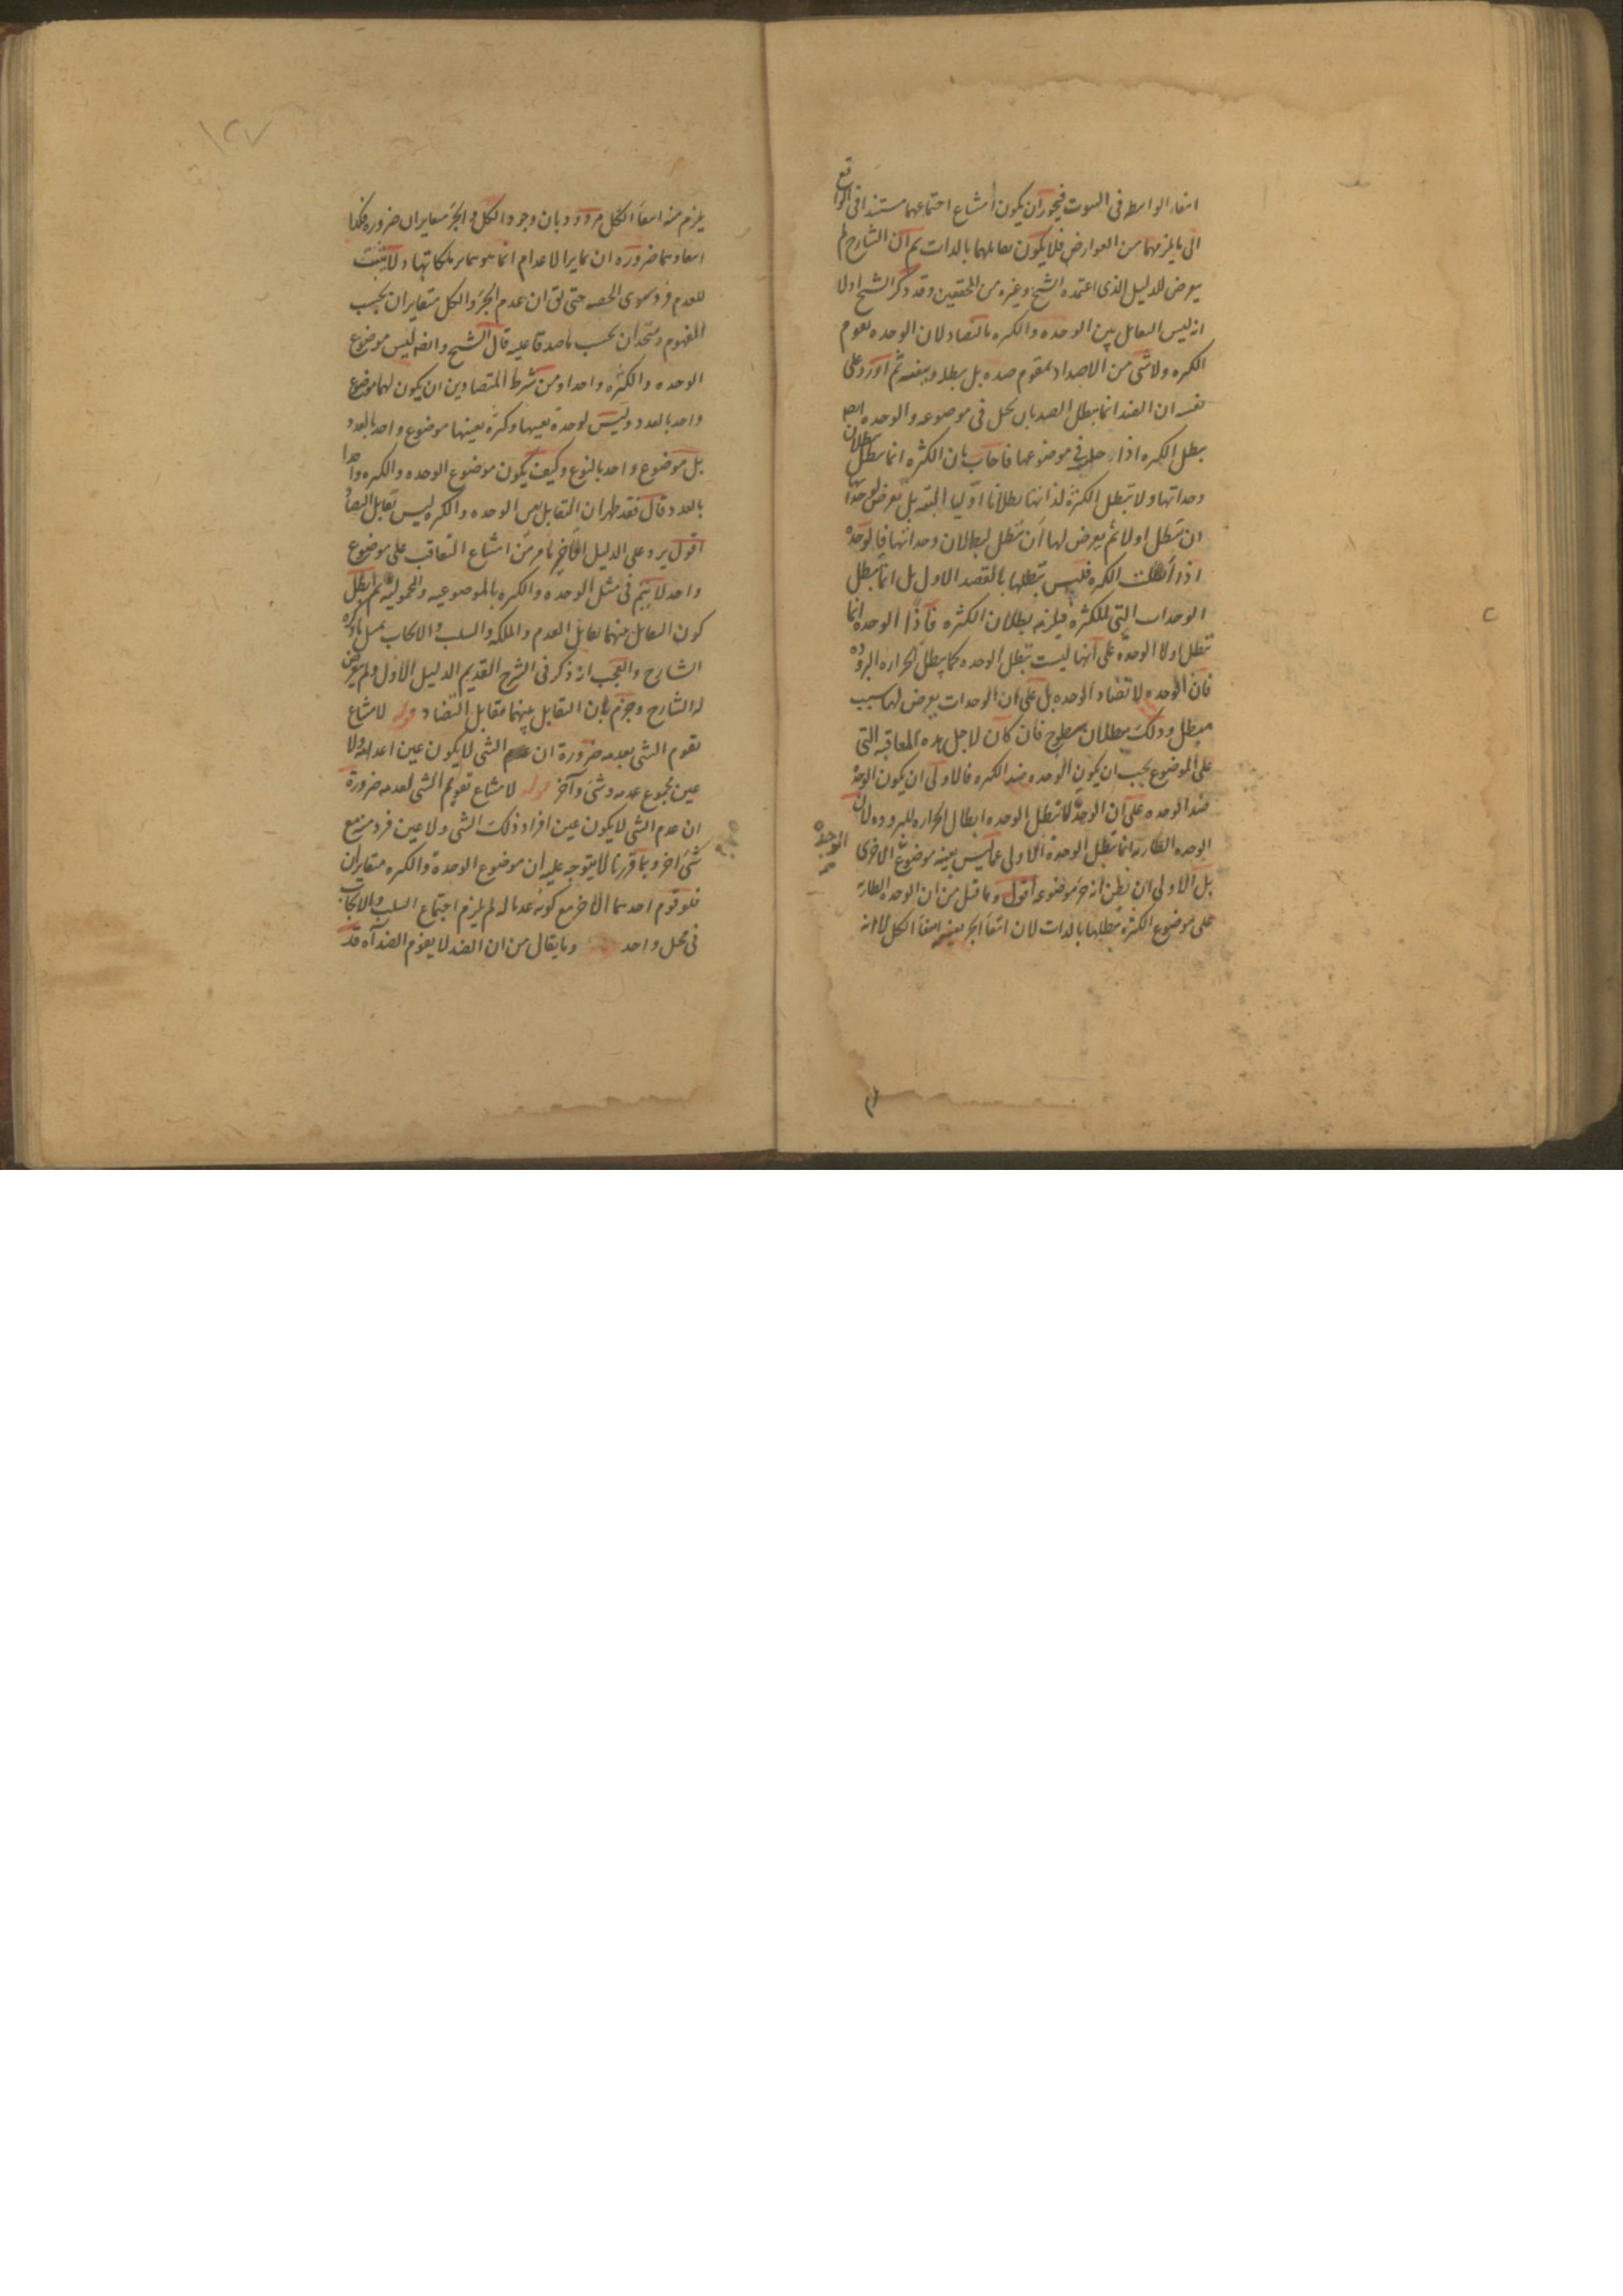 انتفاء الواسطة في الثبوت فيجوز ان يكون امتناع اجتماعهما مستندا في الواقع
الى ما يلزمهما من العوارض فلا يكون تقابلهما بالذات ثم ان الشارح لم
يعرض للدليل الذي اعتمده الشيخ وغيره من المحققين وقد ذكر الشيخ اولا
انه ليس التقابل بين الوحده والكثره بالتضاد لان الوحده تقوم
الكثره ولا شئ من الاضداد بمقوم ضده بل يبطله وينفيه ثم اورد على
نفسه ان الضد انما يبطل الضد بان يحل في موضوعه والوحده ايضا
يبطل الكثره اذا حل في موضوعها فاجاب بان الكثره انما تبطل ببطلان
وحداتها ولا تبطل الكثرة لذاتها بطلانا اوليا البتة بل يعرض لوحداتها
ان تبطل اولا ثم يعرض لها ان تبطل لبطلان وحداتها فالوحدة
اذا أبطلت الكثره فليس تبطلها بالقصد الاول بل انما تبطل
الوحدات التي للكثرة فيلزمه بطلان الكثره فاذا الوحده انما
تبطل اولا الوحدة على انها ليست تبطل الوحده كما يبطل الحراره البروده
فان الوحده لا تضاد الوحده بل على ان الوحدات يعرض لها سبب
مبطل وذلك ببطلان سطوح فان كان لاجل هذه المعاقبه التي
على الموضوع يجب ان يكون الوحده ضد الكثره فالاولى ان يكون الوحدة
ضد الوحده على ان الوحدة لا تبطل الوحده ابطال الحراره للبروده لان
الوحده الطاريه انما تبطل الوحدة الاولى عما ليس بعينه موضوع الاخرى
الوحدة
بل الاولى ان يظن انه جزء موضوعه اقول وما قيل من ان الوحده الطارية
على موضوع الكثرة تبطلها بالذات لان انتفاء الجزء بعينه انتفاء الكل لا انه
يلزم منه انتفاء الكل مردود بان وجود الكل والجزء متغايران ضروره فكذا
انتفاؤهما ضروره ان تمايز الاعدام انما هو بتمايز ملكاتها ولا يثبت
للعدم فرد سوى الحصه حتى يق ان عدم الجزء والكل متغايران بحسب
المفهوم ومتحدان بحسب ما صدقا عليه قال الشيخ وايضا ليس موضوع
الوحده والكثره واحدا ومن شرط المتضادين ان يكون لهما موضوع
واحد بالعدد وليس لوحدة بعينها وكثرة بعينها موضوع واحد بالعدد
بل موضوع واحد بالنوع وكيف يكون موضوع الوحده والكثره واحدا
بالعدد قال فقد ظهر ان التقابل بين الوحده والكثره ليس تقابل التضاد
اقول يرد على الدليل الاخير ما مر من ان امتناع التعاقب على موضوع
واحد لا يتم في مثل الوحده والكثره بالموضوعيه والمحموليه ثم ابطل
كون التقابل بينهما تقابل العدم والملكه والسلب والايجاب بمثل ما ذكره
الشارح والعجب انه ذكر في الشرح القديم الدليل الاول ولم يعرض
له الشارح وجزم بان التقابل بينهما تقابل التضاد قوله لامتناع
تقوم الشئ بعدمه ضرورة ان عدم الشئ لا يكون عين اعدامه ولا
عين مجموع عدمه وشئ وآخر قوله لامتناع تقويم الشئ لعدمه ضرورة
ان عدم الشئ لا يكون عين افراد ذلك الشئ ولا عين فرد منه مع
شئ اخر وبما قررنا لا يتوجه عليه ان موضوع الوحدة والكثره متغايران
فلو قوم احدهما الاخر مع كونه عدما له لم يلزم اجتماع السلب والايجاب
في محل واحد وما يقال من ان الضد لا يقوم الضد آه قد